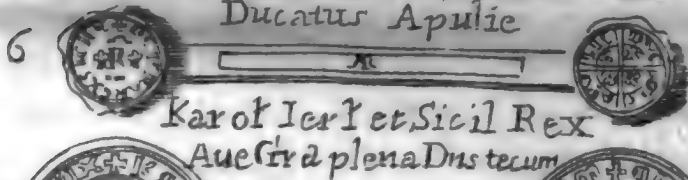 Ducatus Apulie
6
R
Karoł Ierł et Sicil Rex
Ave Gra plena Dns tecum